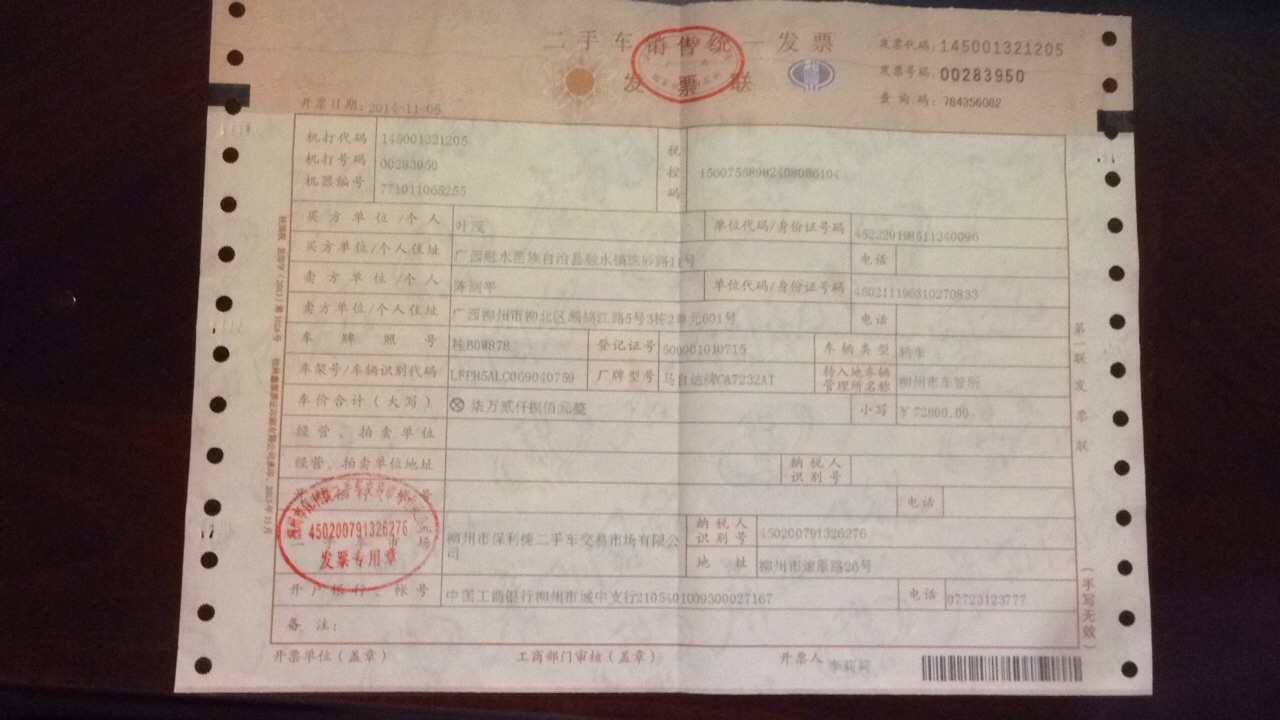 二手车销售统一发票
发票联
发票代码:145001321205
发票号码:00283950
查询码:784356082
开票日期:2014-11-06
机打代码 145001321205
机打号码 00283950
机器编号 771011065255
税控码 15607558982408086104
买方单位/个人 叶茂 单位代码/身份证号码 452229198511240096
买方单位/个人住址 广西融水苗族自治县融水镇 路11号 电话
卖方单位/个人 陈润平 单位代码/身份证号码 450211196310270833
卖方单位/个人住址 广西柳州市柳北区 江路5号3栋2单元601号 电话
车牌照号 桂B0W878 登记证号 500001010715 车辆类型 轿车
车架号/车辆识别代码 LFPH5ALC069040759 厂牌型号 马自达牌CA7232AT 转入地车辆管理所名称 柳州市车管所
车价合计(大写) ⊗ 柒万贰仟捌佰元整 小写 ¥72800.00
经营、拍卖单位
经营、拍卖单位地址 纳税人识别号
电话
柳州市保利 二手车交易市场有限公司 纳税人识别号 450200791326276
地址 柳州市 路26号
开户银行、帐号 中国工商银行柳州市城中支行2105401009300027167 电话 07723123777
备注:
开票单位(盖章) 工商部门审核(盖章) 开票人 李莉莉
450200791326276
发票专用章
第一联 发票联
(手写无效)